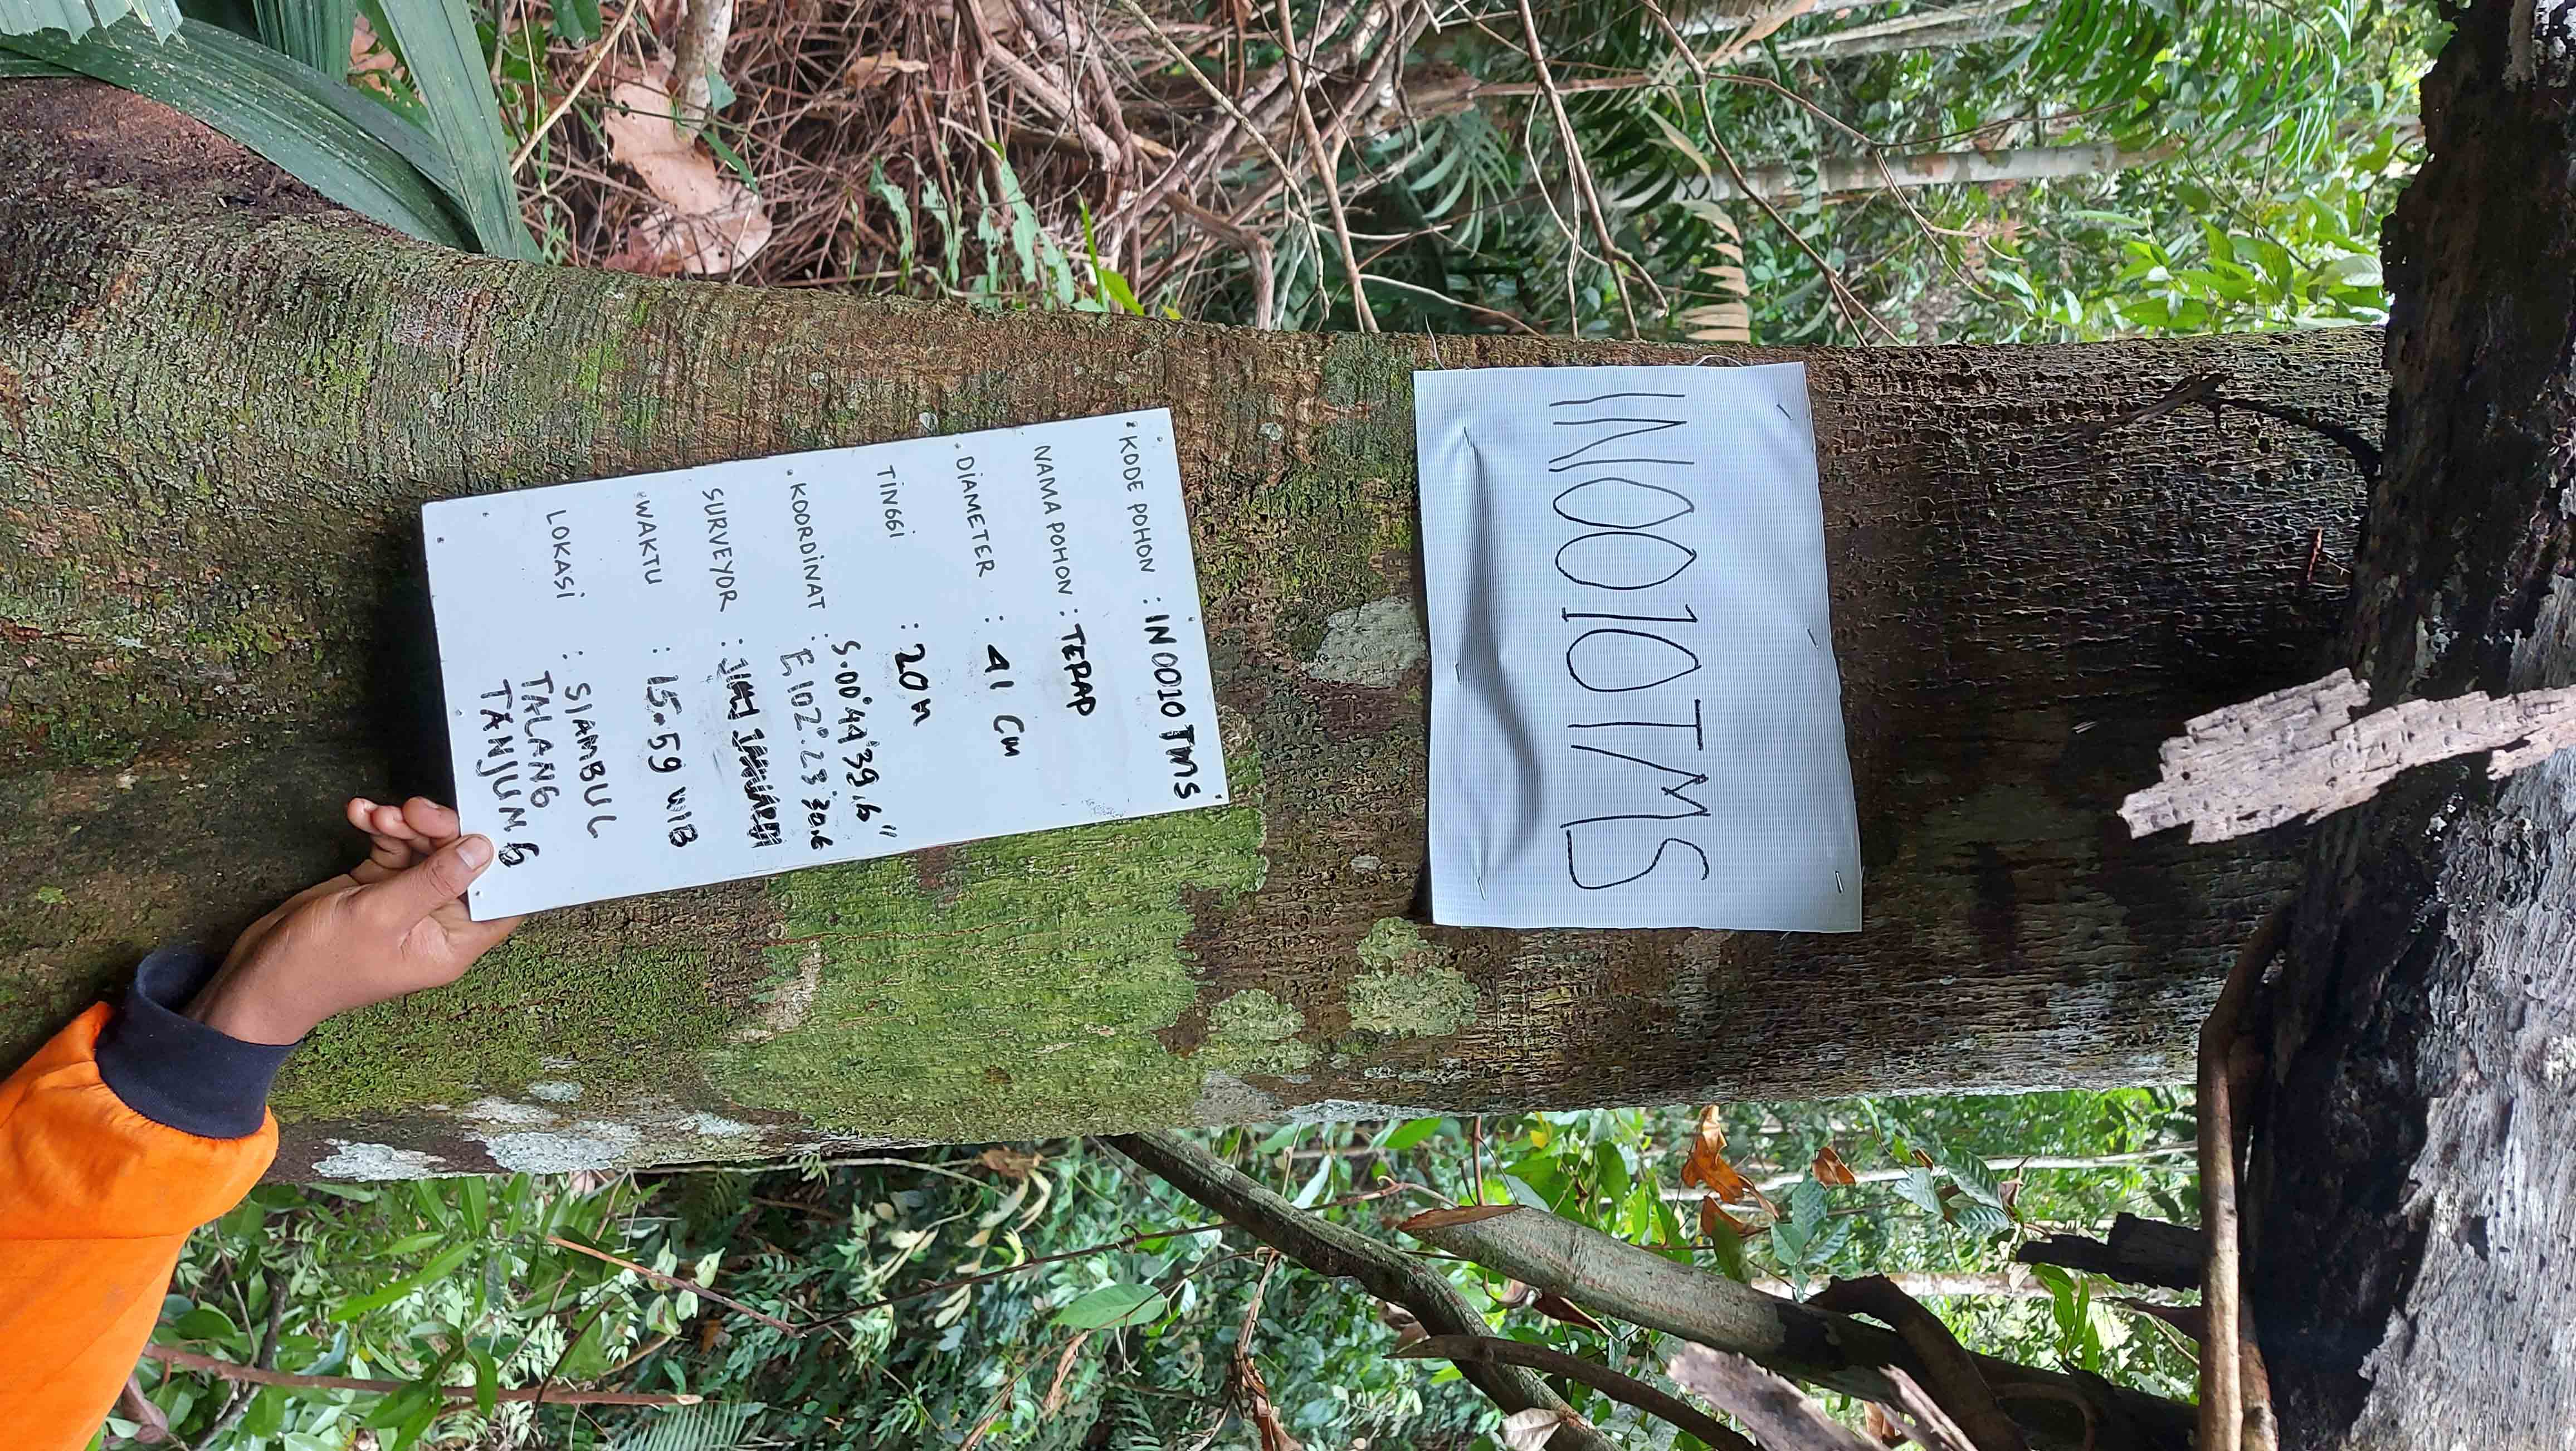 IN0010TMS
KODE POHON : IN 0010 TMS
NAMA POHON : TERAP
DIAMETER : 41 Cm
TINGGI : 20 M
KOORDINAT : S.00°44'39,6"
E,102°.23'30.6
SURVEYOR :
WAKTU : 15.59 WIB
LOKASI : SIAMBUL
TALANG
TANJUNG